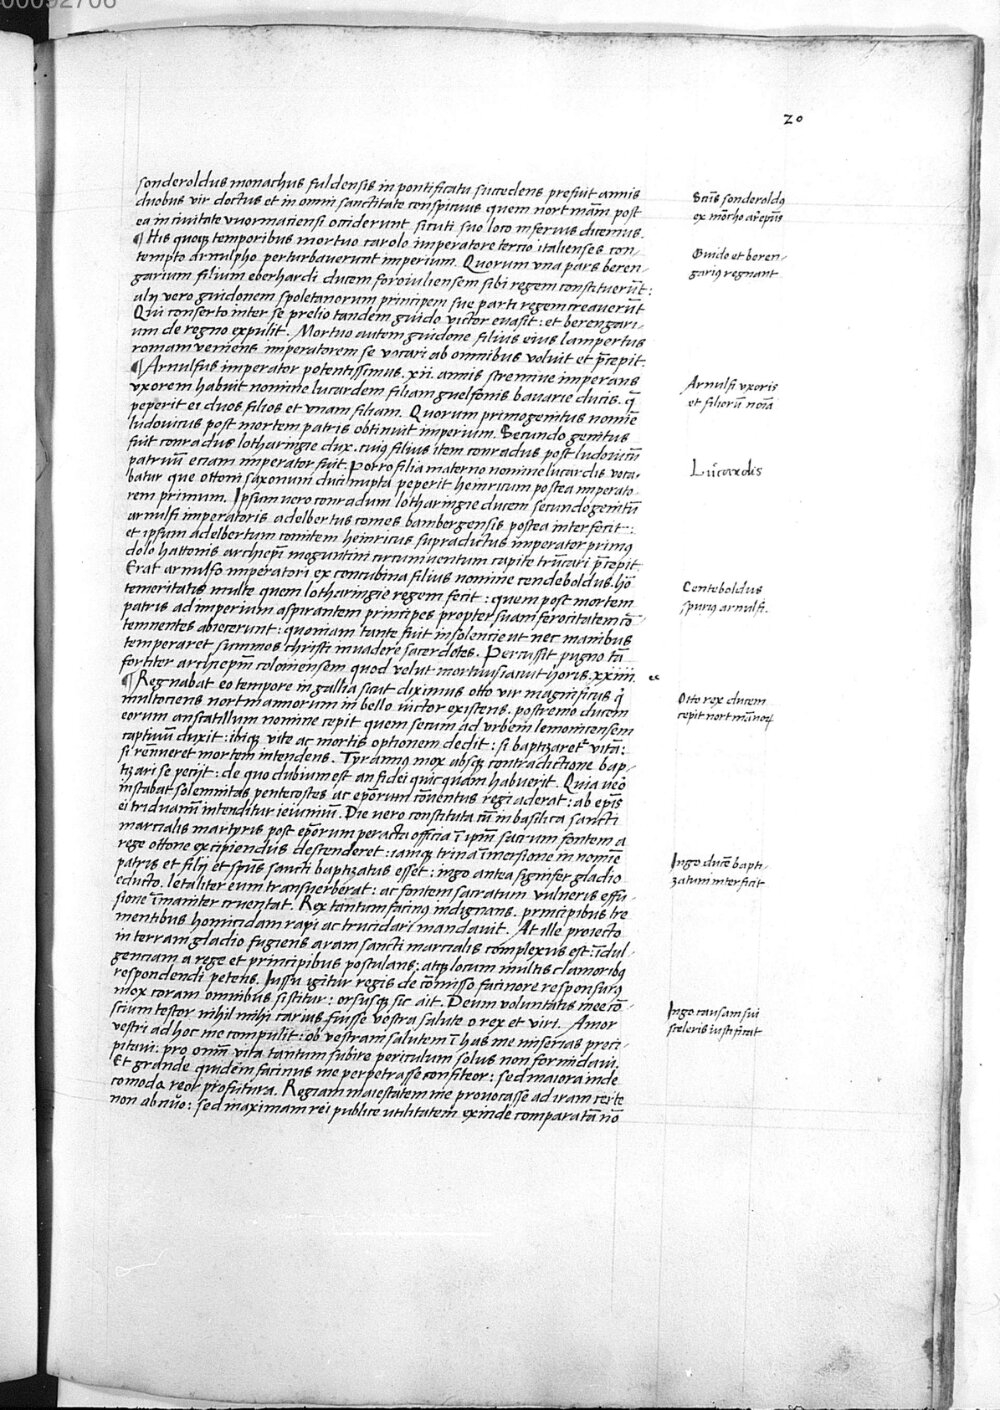 00092706
20
sonderoldus monachus fuldensis in pontificatu succedens prefuit annis
duobus vir doctus et in omni sanctitate conspicuus quem nortmãni post
ea in civitate vuormaciensi occiderunt sicuti suo loco inferius dicemus.
¶ His quoqꝫ temporibus mortuo carolo imperatore tercio italienses con-
tempto arnulpho perturbaverunt imperium. Quorum vna pars beren-
garium filium eberhardi ducem foroiuliensem sibi regem constituerũt:
alij vero guidonem spoletanorum principem sue parti regem creauerũt
Qui conserto inter se prelio tandem guido victor evasit: et berengari-
um de regno expulit. Mortuo autem guidone filius eius lampertus
romam veniens imperatorem se vocari ab omnibus voluit et p̃cepit.
¶ Arnulfus imperator potentissimus .xii. annis strenue imperans
vxorem habuit nomine lucardem filiam guelfonis bauarie ducis. q̃
peperit ei duos filios et vnam filiam. Quorum primogenitus nomĩe
ludovicus post mortem patris obtinuit imperium. Secundo genitus
fuit conradus lotharingie dux. cuiꝰ filius item conradus post ludouicũ
patruũ eciam imperator fuit. Porro filia materno nomine lucardis voca-
batur que ottoni saxonum duci nupta peperit heinricum postea imperato-
rem primum. Ipsum vero conradum lotharingie ducem secundo genitũ
arnulfi imperatoris adelbertus comes bambergensis postea interfecit:
et ipsum adelbertum comitem heinricus supradictus imperator primꝰ
dolo hattonis archiepĩ moguntini circumuentum capite trũcari p̃cepit
Erat arnulfo imperatori ex concubina filius nomine cendeboldus. hõ
temeritatis multe quem lotharingie regem fecit: quem post mortem
patris ad imperium aspirantem principes propter suam ferocitatem cõ-
temnentes abiecerunt: quoniam tante fuit insolencie ut nec manibus
temperaret summos christi inuadere sacerdotes. Percussit pugno tã
fortiter archiepm̃ coloniensem quod velut mortuus iacuit horis .xxiiii.
¶ Regnabat eo tempore in gallia sicut diximus otto vir magnificus q̃
multociens nortmannorum in bello victor existens. postremo ducem
eorum anstatillum nomine cepit quem secum ad vrbem lemovicensem
captiuũ duxit: ibiqꝫ vite ac mortis optionem dedit: si baptizaretᷣ vitã:
si rẽnueret mortem intendens. Tyrannus mox absqꝫ contradictione bap-
tizari se petijt: de quo dubium est an fidei quicquam habuerit. Quia uẽo
instabat solemnitas pentecostes ac ep̃orum cõuentus regi aderat: ab epĩs
ei triduanũ intenditur ieiuniũ. Die vero constituta cũ in basilica sancti
marcialis martyris post ep̃orum peracta officia ĩ ipm̃ sacrum fontem a
rege ottone excipiendus descenderet: iamqꝫ trina ĩmersione in nomĩe
patris et filij et sp̃us sancti baptizatus esset: ingo antea signifer gladio
educto. letaliter eum transverberat: ac fontem sacratum vulneris effu-
sione ĩnaniter cruentat. Rex tantum facinꝰ indignans. principibus tre
mentibus homicidam rapi ac trucidari mandauit. At ille proiecto
in terram gladio fugiens aram sancti marcialis complexus est: ĩdul-
genciam a rege et principibus postulans: atqꝫ locum multis clamoribꝰ
respondendi petens. Jussu igitur regis de cõmisso facinore responsurꝰ
mox coram omnibus sistitur: orsusqꝫ sic ait. Deum voluntatis mee cõ-
scium testor nihil mihi carius fuisse vestra salute o rex et viri. Amor
vestri ad hoc me compulit: ob vestram salutem ĩ has me miserias preci-
pitaui. pro omñi vita tantum subire periculum solus non formidaui.
Et grande quidem facinus me perpetrasse confiteor: sed maiora inde
comoda reor profutura. Regiam maiestatem me prouocasse ad iram certe
non abnũo: sed maximam rei publice utilitatem exinde comparatã nõ
Scũs sonderoldꝰ
ex mõcho arẽpũs
Guido et beren-
gariꝰ regnant
Arnulfi vxoris
et filiorũ noĩa
Lũcardis
Centeboldus
spuriꝰ arnulfi.
Otto rex ducem
cepit nortmãnoꝝ
Jngo ducẽ bapti-
zatum interficit
Jngo causam sui
sceleris iustificat